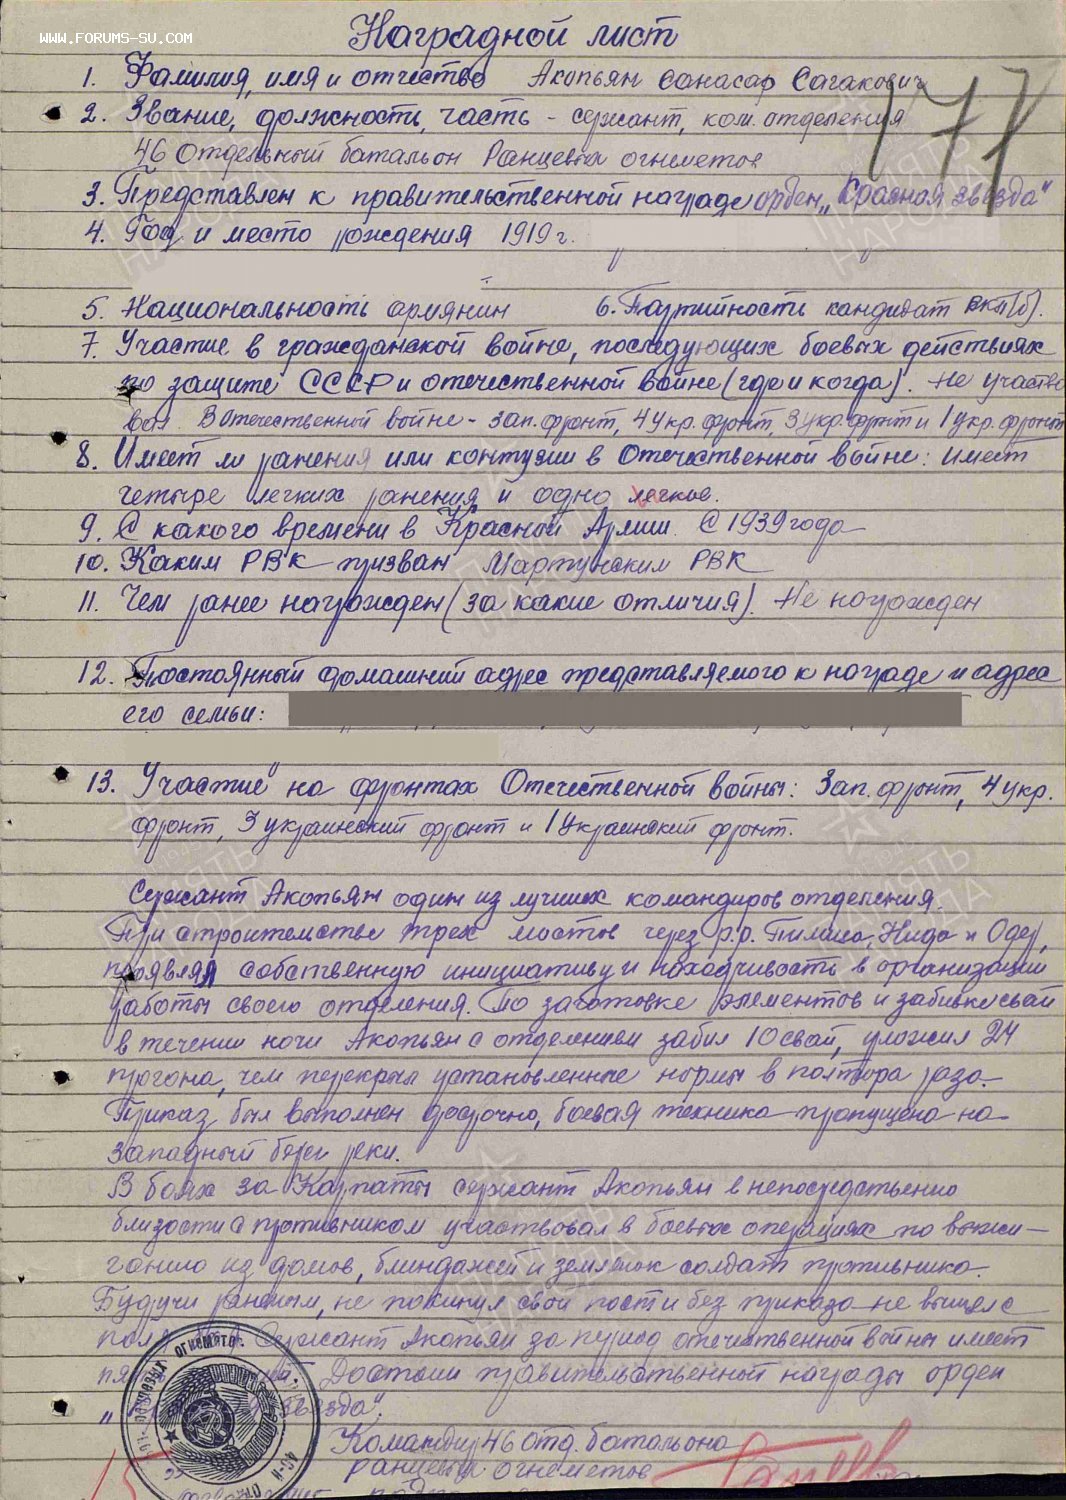 WWW.FORUMS-SU.COM
Наградной лист
177
1. Фамилия, имя и отчество Акопьян Санасар Сагакович
2. Звание, должность, часть - сержант, ком. отделения
46 Отдельный батальон Ранцевых огнеметов
3. Представлен к правительственной награде орден „Красная звезда"
4. Год и место рождения 1919 г.
5. Национальность армянин 6. Партийность кандидат ВКП(б).
7. Участие в гражданской войне, последующих боевых действиях
по защите СССР и отечественной войне (где и когда). Не участво
вал. В Отечественной войне - Зап. фронт, 4 Укр. фронт, 3 укр. фронт и 1 укр. фронт
8. Имеет ли ранения или контузии в Отечественной войне: имеет
четыре легких ранения и одно легкое.
9. С какого времени в Красной Армии. С 1939 года
10. Каким РВК призван Мартунским РВК
11. Чем ранее награжден (за какие отличия). Не награжден
12. Постоянный домашний адрес представляемого к награде и адрес
его семьи:
13. Участие на фронтах Отечественной войны: Зап. фронт, 4 укр.
фронт, 3 украинский фронт и 1 Украинский фронт.
Сержант Акопьян один из лучших командиров отделения.
При строительстве трех мостов через р.р. Пилица, Нида и Одер,
проявлял собственную инициативу и находчивость в организации
работы своего отделения. По заготовке элементов и забивке свай
в течении ночи Акопьян с отделением забил 10 свай, уложил 24
прогона, чем перекрыл установленные нормы в полтора раза.
Приказ был выполнен досрочно, боевая техника пропущена на
западный берег реки.
В боях за Карпаты сержант Акопьян в непосредственно
близости с противником участвовал в боевых операциях по выжи-
ганию из домов, блиндажей и землянок солдат противника.
Будучи раненым, не покинул свой пост и без приказа не вышел с
поля Сержант Акопьян за период отечественной войны имеет
Достоин правительственной награды орден
звезда".
Командир 46 отд. батальона
ранцевых огнеметов